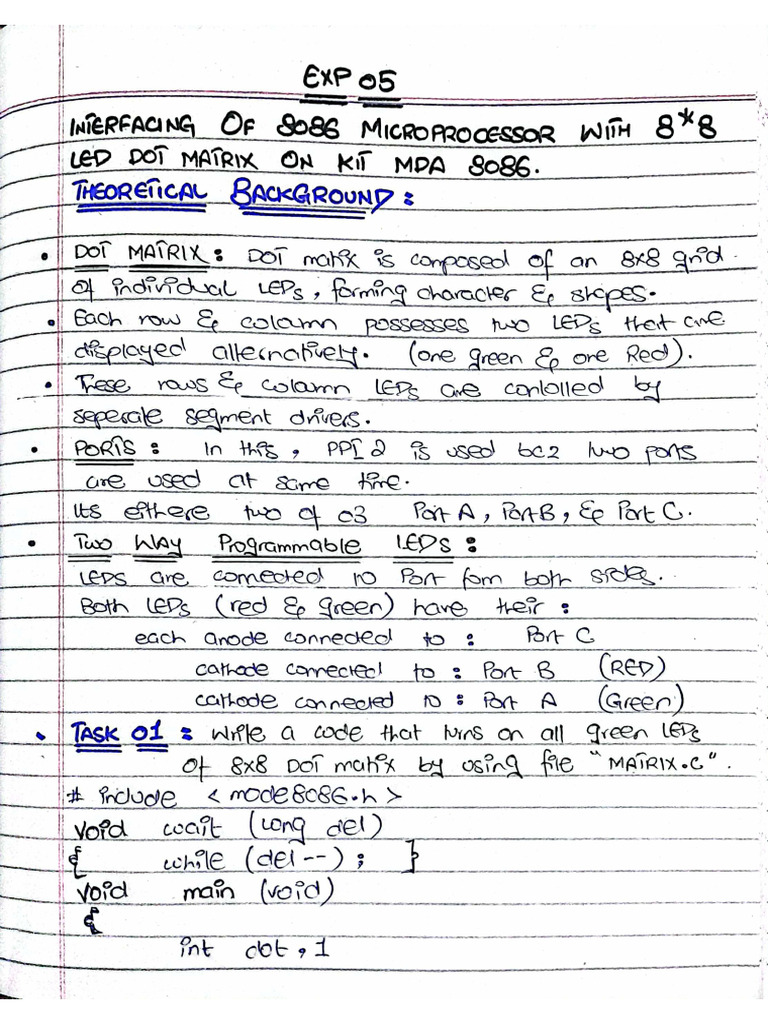 EXP 05
INTERFACING OF 8086 MICROPROCESSOR WITH 8*8
LED DOT MATRIX ON KIT MDA 8086.
THEORETICAL BACKGROUND:
• DOT MATRIX: DOT matix is composed of an 8x8 grid
of individual LEDs, forming character & shapes.
• Each row & colamn possesses two LEDs that are
displayed alternatively. (one green & one Red).
• These rows & colamn LEDs are contolled by
seperate segment drivers.
• PORTS: In this, PPI 2 is used bcz two ports
are used at same time.
Its eithere two of 03 Port A, Port B, & Port C.
• Two Way Programmable LEDS:
LEDs are connected to Port form both sides.
Both LEDs (red & green) have their:
each anode connected to: Port C
cathode connected to: Port B (RED)
cathode connected to: Port A (Green)
• TASK 01: Write a code that turns on all green LEDs
of 8x8 DOT matix by using file "MATRIX.C".
# include <mode8086.h>
void wait (long del)
{ while (del--); }
void main (void)
{
int dot, 1